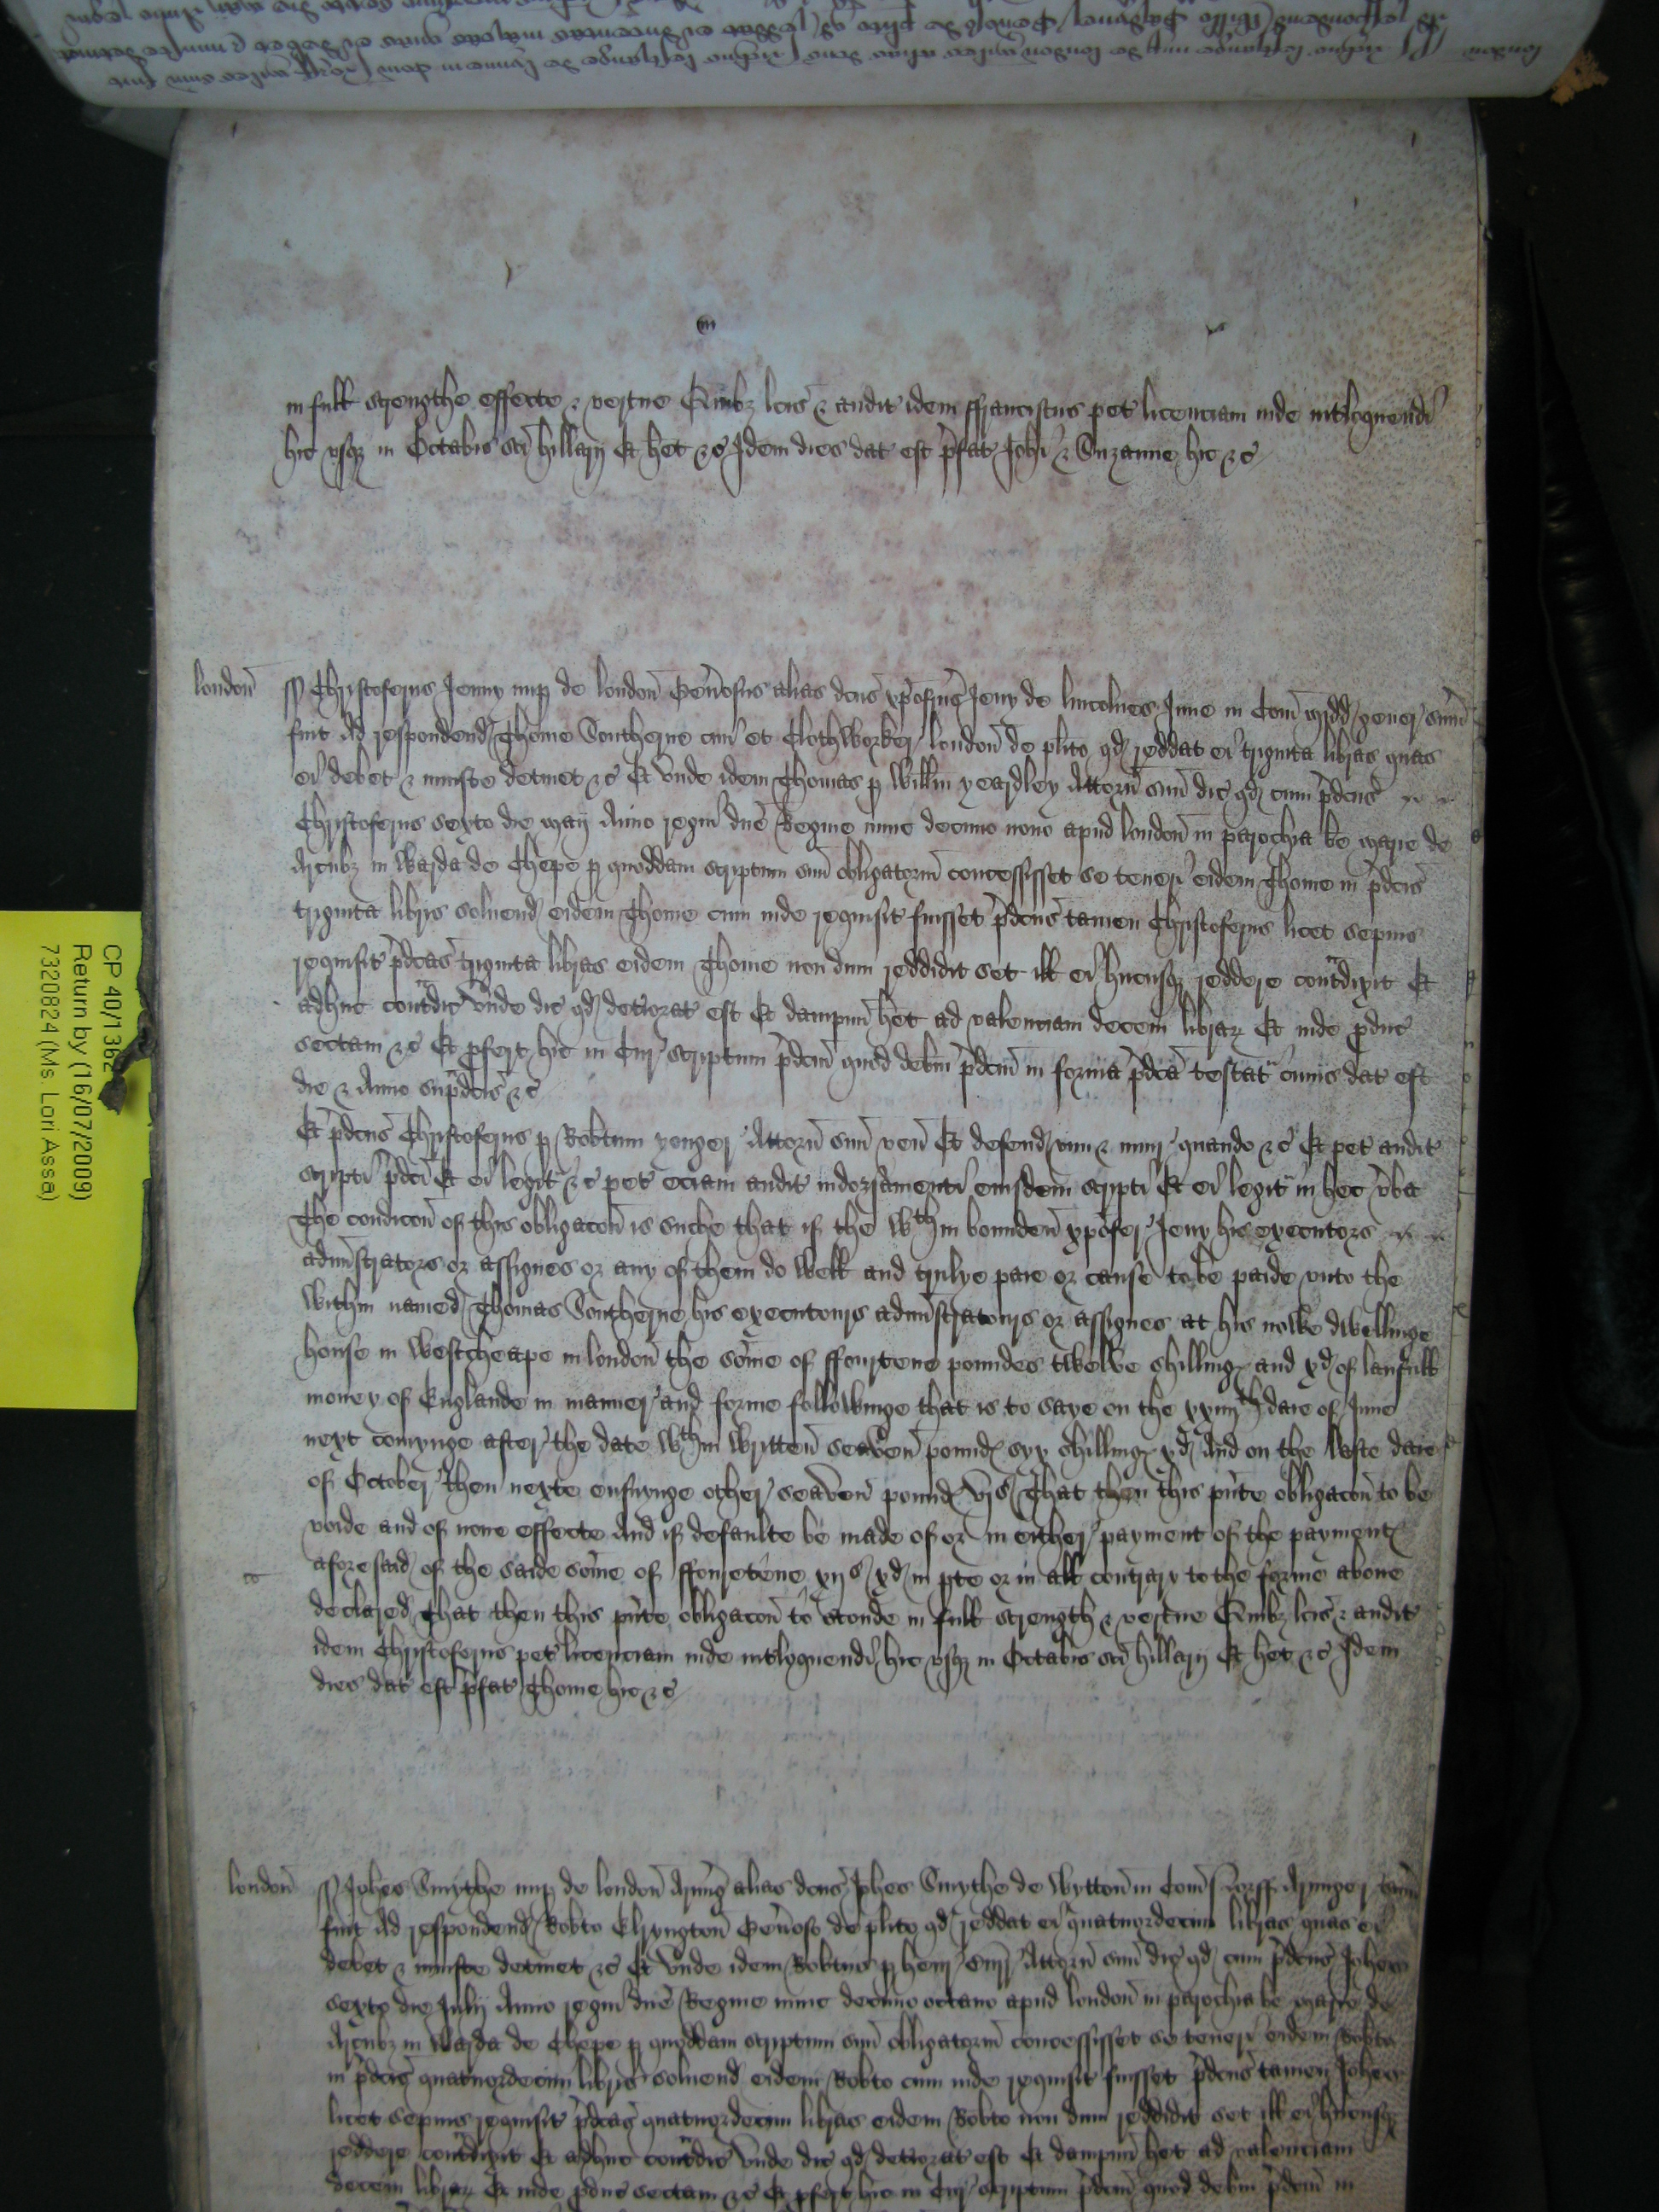 in full strengthe effecte & vertue Quibz lcis & audit idem ffranciscus pet licenciam inde intloquendi
hic usqz in Octabis sci hillarij Et het &c Idem dies dat est pfat Johi & Suzanne hic &c
london ss Christoferus Jenny nup de london Genosus alias dcus xpoferus Jeny de lincolnes Inne in Com midd gener sum
fuit Ad respondend Thome Southerne civi et Clothworker london de plito qd reddat ei triginta libras quas
ei debet & iniuste detinet &c Et unde idem Thomas p Willm yeardley Attorn suu dic qd cum pdcus
Christoferus sexto die maij Anno regni dne Regine nunc decimo nono apud london in parochia be marie de
Arcubz in Warda de Chepe p quoddam scriptum suu obligatoriu concessisset se teneri eidem Thome in pdcis
triginta libris solvend eidem Thome cum inde requisit fuisset pdcus tamen Christoferus licet sepius
requisit pdcas triginta libras eidem Thome non dum reddidit set ill ei hucusqz reddere contdixit Et
adhuc contdic unde dic qd deteriorat est Et dampnu het ad valenciam decem librar Et inde pduc
sectam &c Et pfert hic in Cur scriptum pdcm quod debm pdcm in forma pdca testat cuius dat est
die & Anno supdcis &c
Et pdcus Christoferus p Robtum yonger Attorn suu ven Et defend vim & iniur quando &c Et pet audit
scripti pdci Et ei legit &c pet eciam audit indorsamenti eiusdem scripti Et ei legit in hec vba
The condicon of this obligacon is suche that if the wthin bounden xpofer Jeny his executors
adminstrators or assignes or any of them do well and trulye paie or cause to be paide unto the
within named Thomas Southerne his executours adminstratours or assignes at his nowe dwellinge
house in Westcheape in london the some of ffourtene poundes twelve shilling and xd of laufull
money of Englande in manner and forme followinge that is to saye on the xxiiijth daie of June
next comynge after the date wthin written seaven pound syx shilling xd And on the laste daie
of October then nexte ensuynge other seaven pound vjs That then this pnte obligacon to be
voide and of none effecte And if defaulte be made of or in either payment of the payment
aforesaid of the saide some of ffourtene xijs xd in pte or in all contrary to the forme above
declared That then this pnte obligacon to stonde in full strength & vertue Quibz lcis & audit
idem Christoferus pet licenciam inde intloquendi hic usqz in Octabis sci hillarij Et het &c Idem
dies dat est pfat Thome hic &c
london ss Johes Smythe nup de london Armig alias dcus Johes Smythe de Wytton in Com Norff Armiger sum
fuit Ad respondend Robto Elryngton Genoso de plito qd reddat ei quatuordecim libras quas ei
debet & iniuste detinet &c Et unde idem Robtus p henr Attorn suu dic qd cum pdcus Johes
sexto die Julij Anno regni dne Regine nunc decimo octavo apud london in parochia be marie de
Arcubz in Warda de Chepe p quoddam scriptum suu obligatoriu concessisset se teneri eidem Robto
in pdcis quatuordecim libris solvend eidem Robto cum inde requisit fuisset pdcus tamen Johes
licet sepius requisit pdcas quatuordecim libras eidem Robto non dum reddidit set ill ei hucusqz
reddere contdixit Et adhuc contdic unde dic qd deteriorat est Et dampnu het ad valenciam
decem librar Et inde pduc sectam &c Et pfert hic in Cur scriptum pdcm quod debm pdcm in
CP 40/1362
Return by (16/07/2009)
7320824 (Ms. Lori Assa)